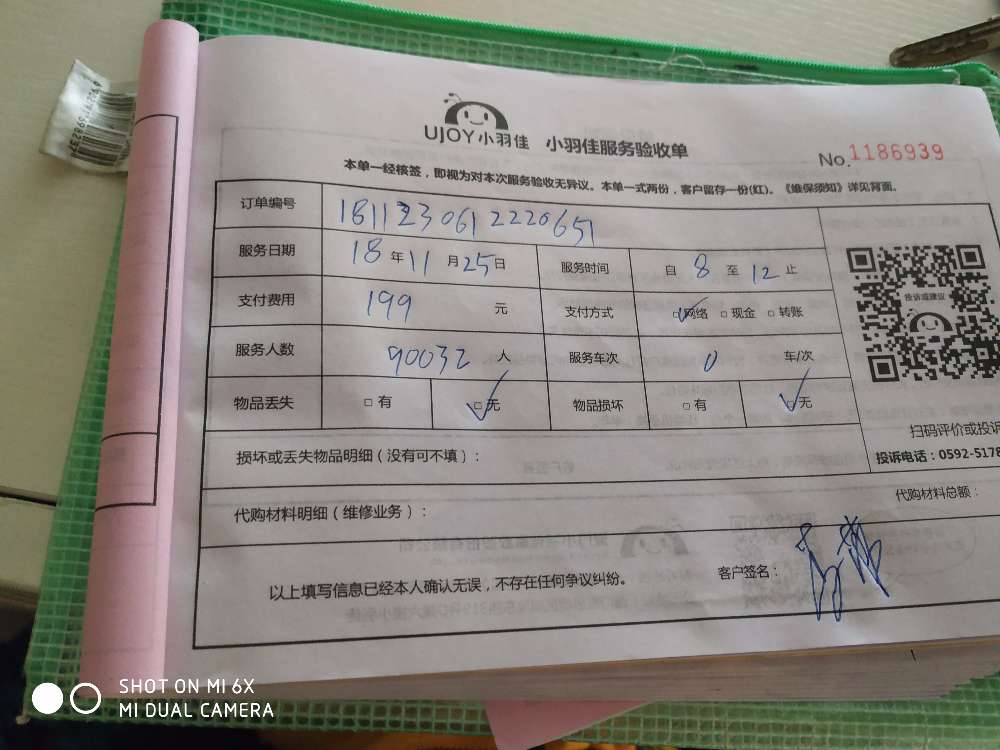 UJOY小羽佳 小羽佳服务验收单
No.1186939
本单一经核签，即视为对本次服务验收无异议。本单一式两份，客户留存一份(红)。《维保须知》详见背面。
订单编号 181123061222 0651
服务日期 18年11月25日 服务时间 自8至12止
支付费用 199 元 支付方式 □网络 □现金 □转账
服务人数 90032 人 服务车次 0 车/次
物品丢失 □有 □无 物品损坏 □有 □无
投诉或建议
扫码评价或投诉
投诉电话：0592-5178
损坏或丢失物品明细（没有可不填）：
代购材料明细（维修业务）：
代购材料总额：
以上填写信息已经本人确认无误，不存在任何争议纠纷。
客户签名：
SHOT ON MI 6X
MI DUAL CAMERA